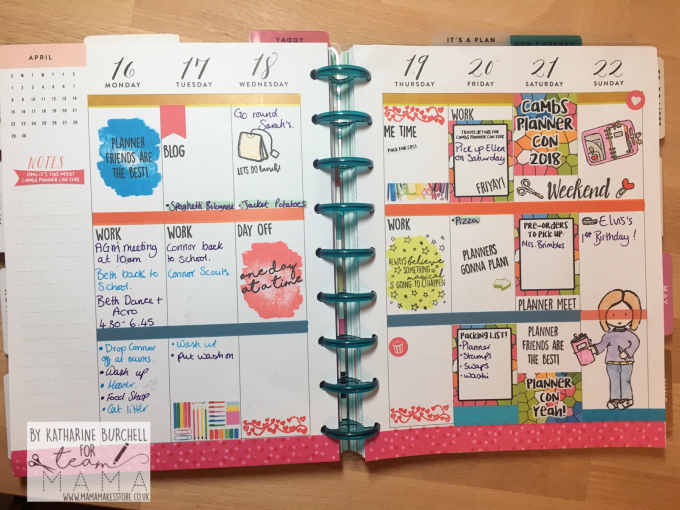 YAQOT
IT'S A PLAN
DON'T FORGET
APRIL
16
MONDAY
17
TUESDAY
18
WEDNESDAY
19
THURSDAY
20
FRIDAY
21
SATURDAY
22
SUNDAY
NOTES
OMG IT'S THIS WEEK!
CAMBS PLANNER CON 2018
PLANNER
FRIENDS ARE
THE BEST!
BLOG
• Spaghetti Bolognne
Go round
Sarah's.
LETS DO lunch!
• Jacket Potatoes
ME TIME
WORK
Pick up Ellen
on Saturday
FRIYAY!
CAMBS
PLANNER
CON
2018
Weekend
WORK
AGM meeting
at 10am
Beth back to
School.
Beth Dance +
Acro
4.30-6.45
WORK
Connor back
to School.
Connor Scouts
DAY OFF
one day
at a time
WORK
ALWAYS believe
SOMETHING
magical
IS GOING TO HAPPEN
• Pizza
PLANNERS
GONNA PLAN!
PRE-ORDERS
TO PICK UP
Mrs. Brimbles
PLANNER MEET
ELVIS's
1st Birthday!
• Drop Connor
off at mums.
• Wash up
• Hoover
• Food Shop
• Cat litter
• Wash up
• Put wash on
PACKING LIST!
• Planner
• Stamps
• Swaps
• Washi
PLANNER
FRIENDS ARE
THE BEST!
PLANNER
CON
Yeah!
MAY
BY KATHARINE BURCHELL
FOR
team
MAMA
WWW.MAMAMAKESSTORE.CO.UK